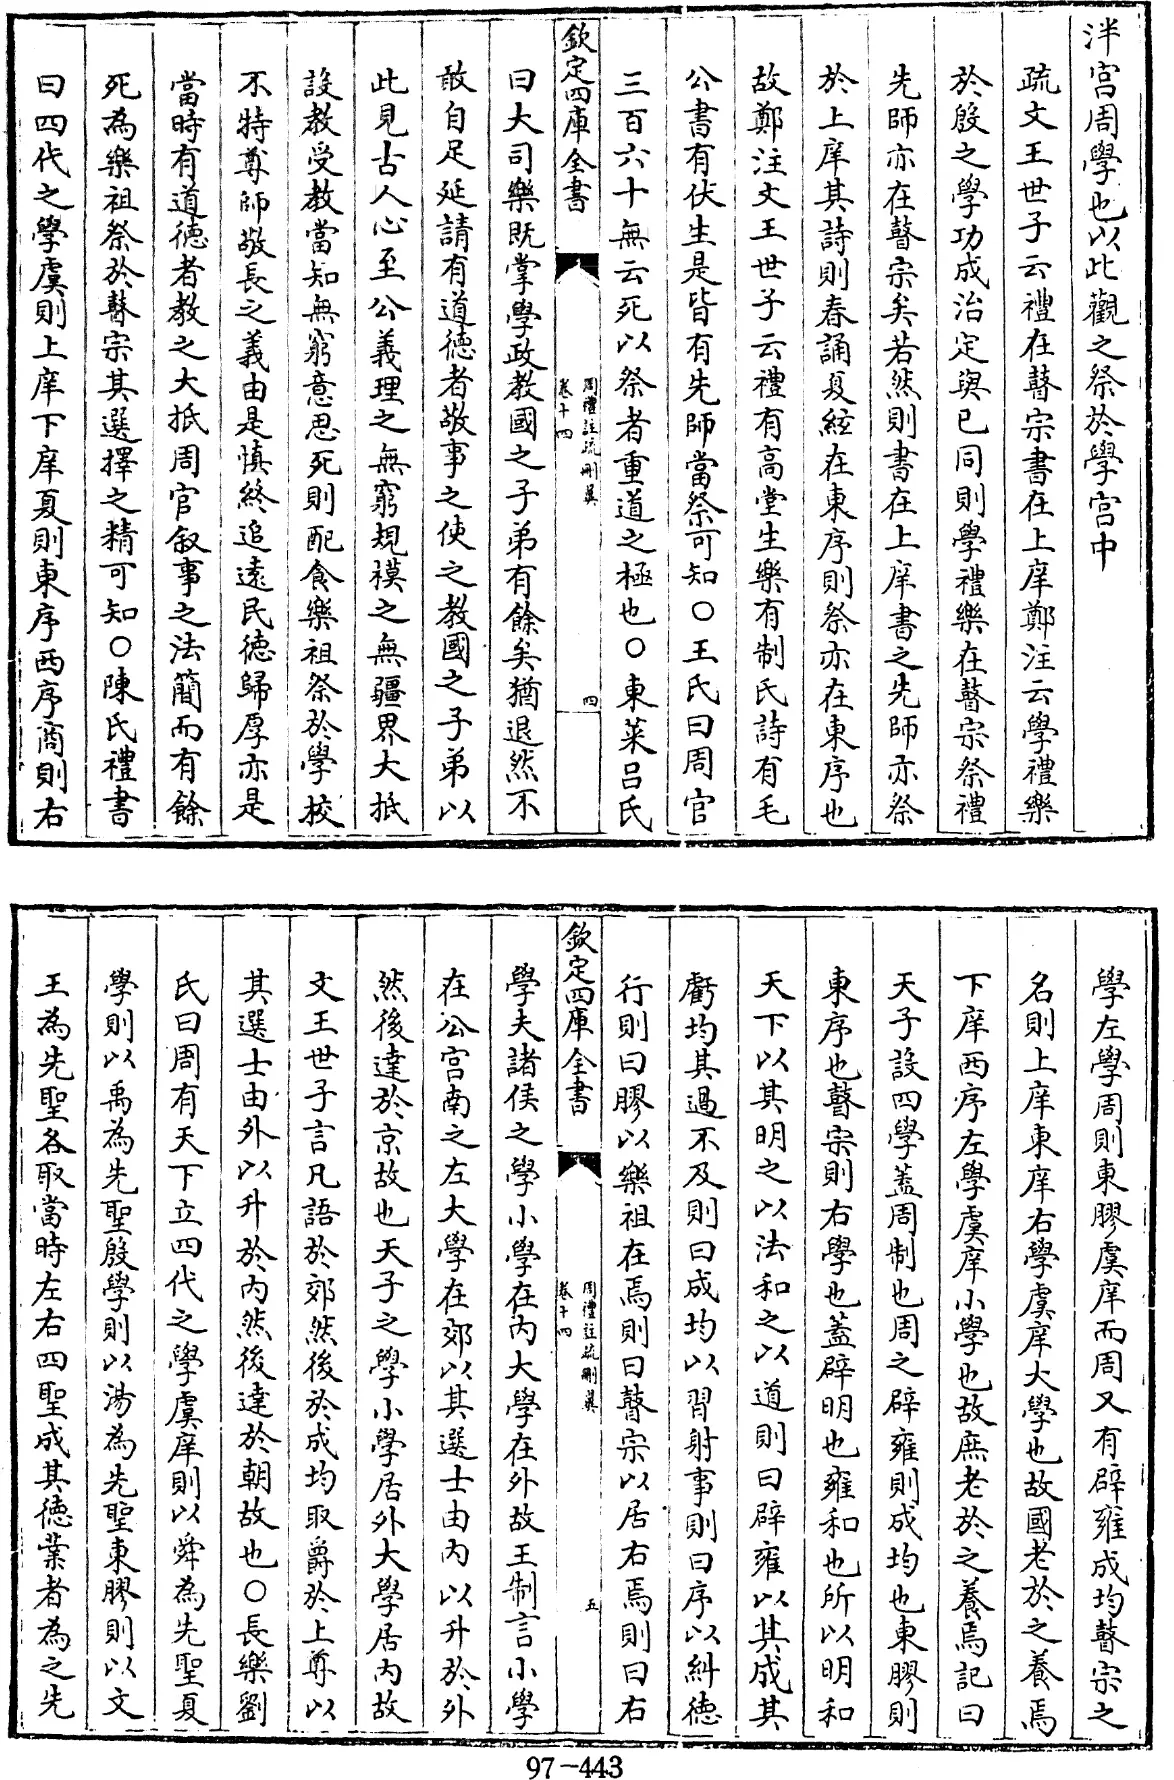 泮宫周學也以此觀之祭於學宫中
疏文王世子云禮在瞽宗書在上庠鄭注云學禮樂
於殷之學功成治定與已同則學禮樂在瞽宗祭禮
先師亦在瞽宗矣若然則書在上庠書之先師亦祭
於上庠其詩則春誦夏絃在東序則祭亦在東序也
故鄭注文王世子云禮有高堂生樂有制氏詩有毛
公書有伏生是皆有先師當祭可知○王氏曰周官
三百六十無云死以祭者重道之極也○東萊吕氏
欽定四庫全書
周禮註疏刪翼
卷十四
四
曰大司樂既掌學政教國之子弟有餘矣猶退然不
敢自足延請有道德者敬事之使之教國之子弟以
此見古人心至公義理之無窮規模之無疆界大抵
設教受教當知無窮意思死則配食樂祖祭於學校
不特尊師敬長之義由是慎終追遠民德歸厚亦是
當時有道德者教之大抵周官敘事之法簡而有餘
死為樂祖祭於瞽宗其選擇之精可知○陳氏禮書
曰四代之學虞則上庠下庠夏則東序西序商則右
學左學周則東膠虞庠而周又有辟雍成均瞽宗之
名則上庠東庠右學虞庠大學也故國老於之養焉
下庠西序左學虞庠小學也故庶老於之養焉記曰
天子設四學蓋周制也周之辟雍則成均也東膠則
東序也瞽宗則右學也蓋辟明也雍和也所以明和
天下以其明之以法和之以道則曰辟雍以其成其
虧均其過不及則曰成均以習射事則曰序以糾德
行則曰膠以樂祖在焉則曰瞽宗以居右焉則曰右
欽定四庫全書
周禮註疏刪翼
卷十四
五
學夫諸侯之學小學在内大學在外故王制言小學
在公宫南之左大學在郊以其選士由内以升於外
然後達於京故也天子之學小學居外大學居内故
文王世子言凡語於郊然後於成均取爵於上尊以
其選士由外以升於内然後達於朝故也○長樂劉
氏曰周有天下立四代之學虞庠則以舜為先聖夏
學則以禹為先聖殷學則以湯為先聖東膠則以文
王為先聖各取當時左右四聖成其德業者為之先
97-443